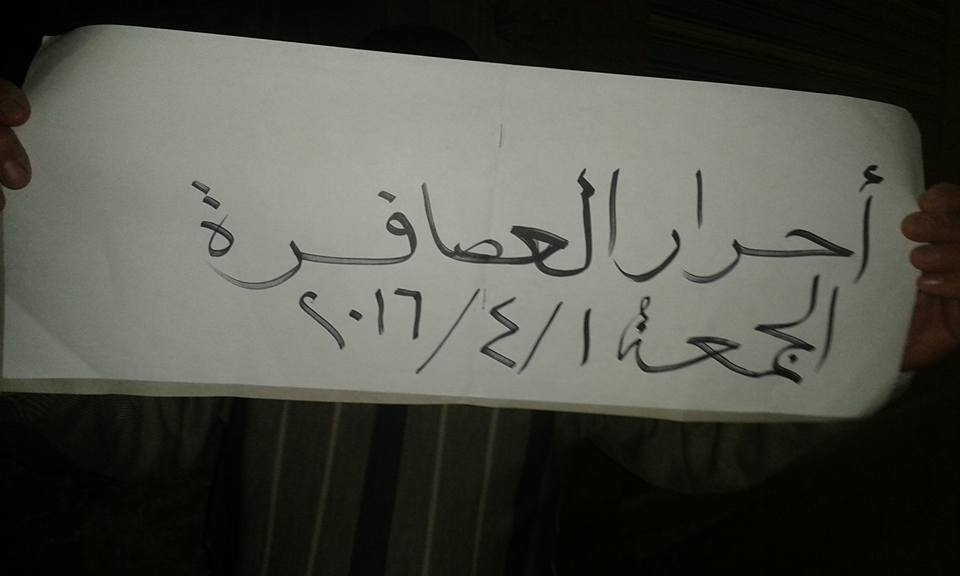 أحرار العصافرة
الجمعة ١/٤/٢٠١٦